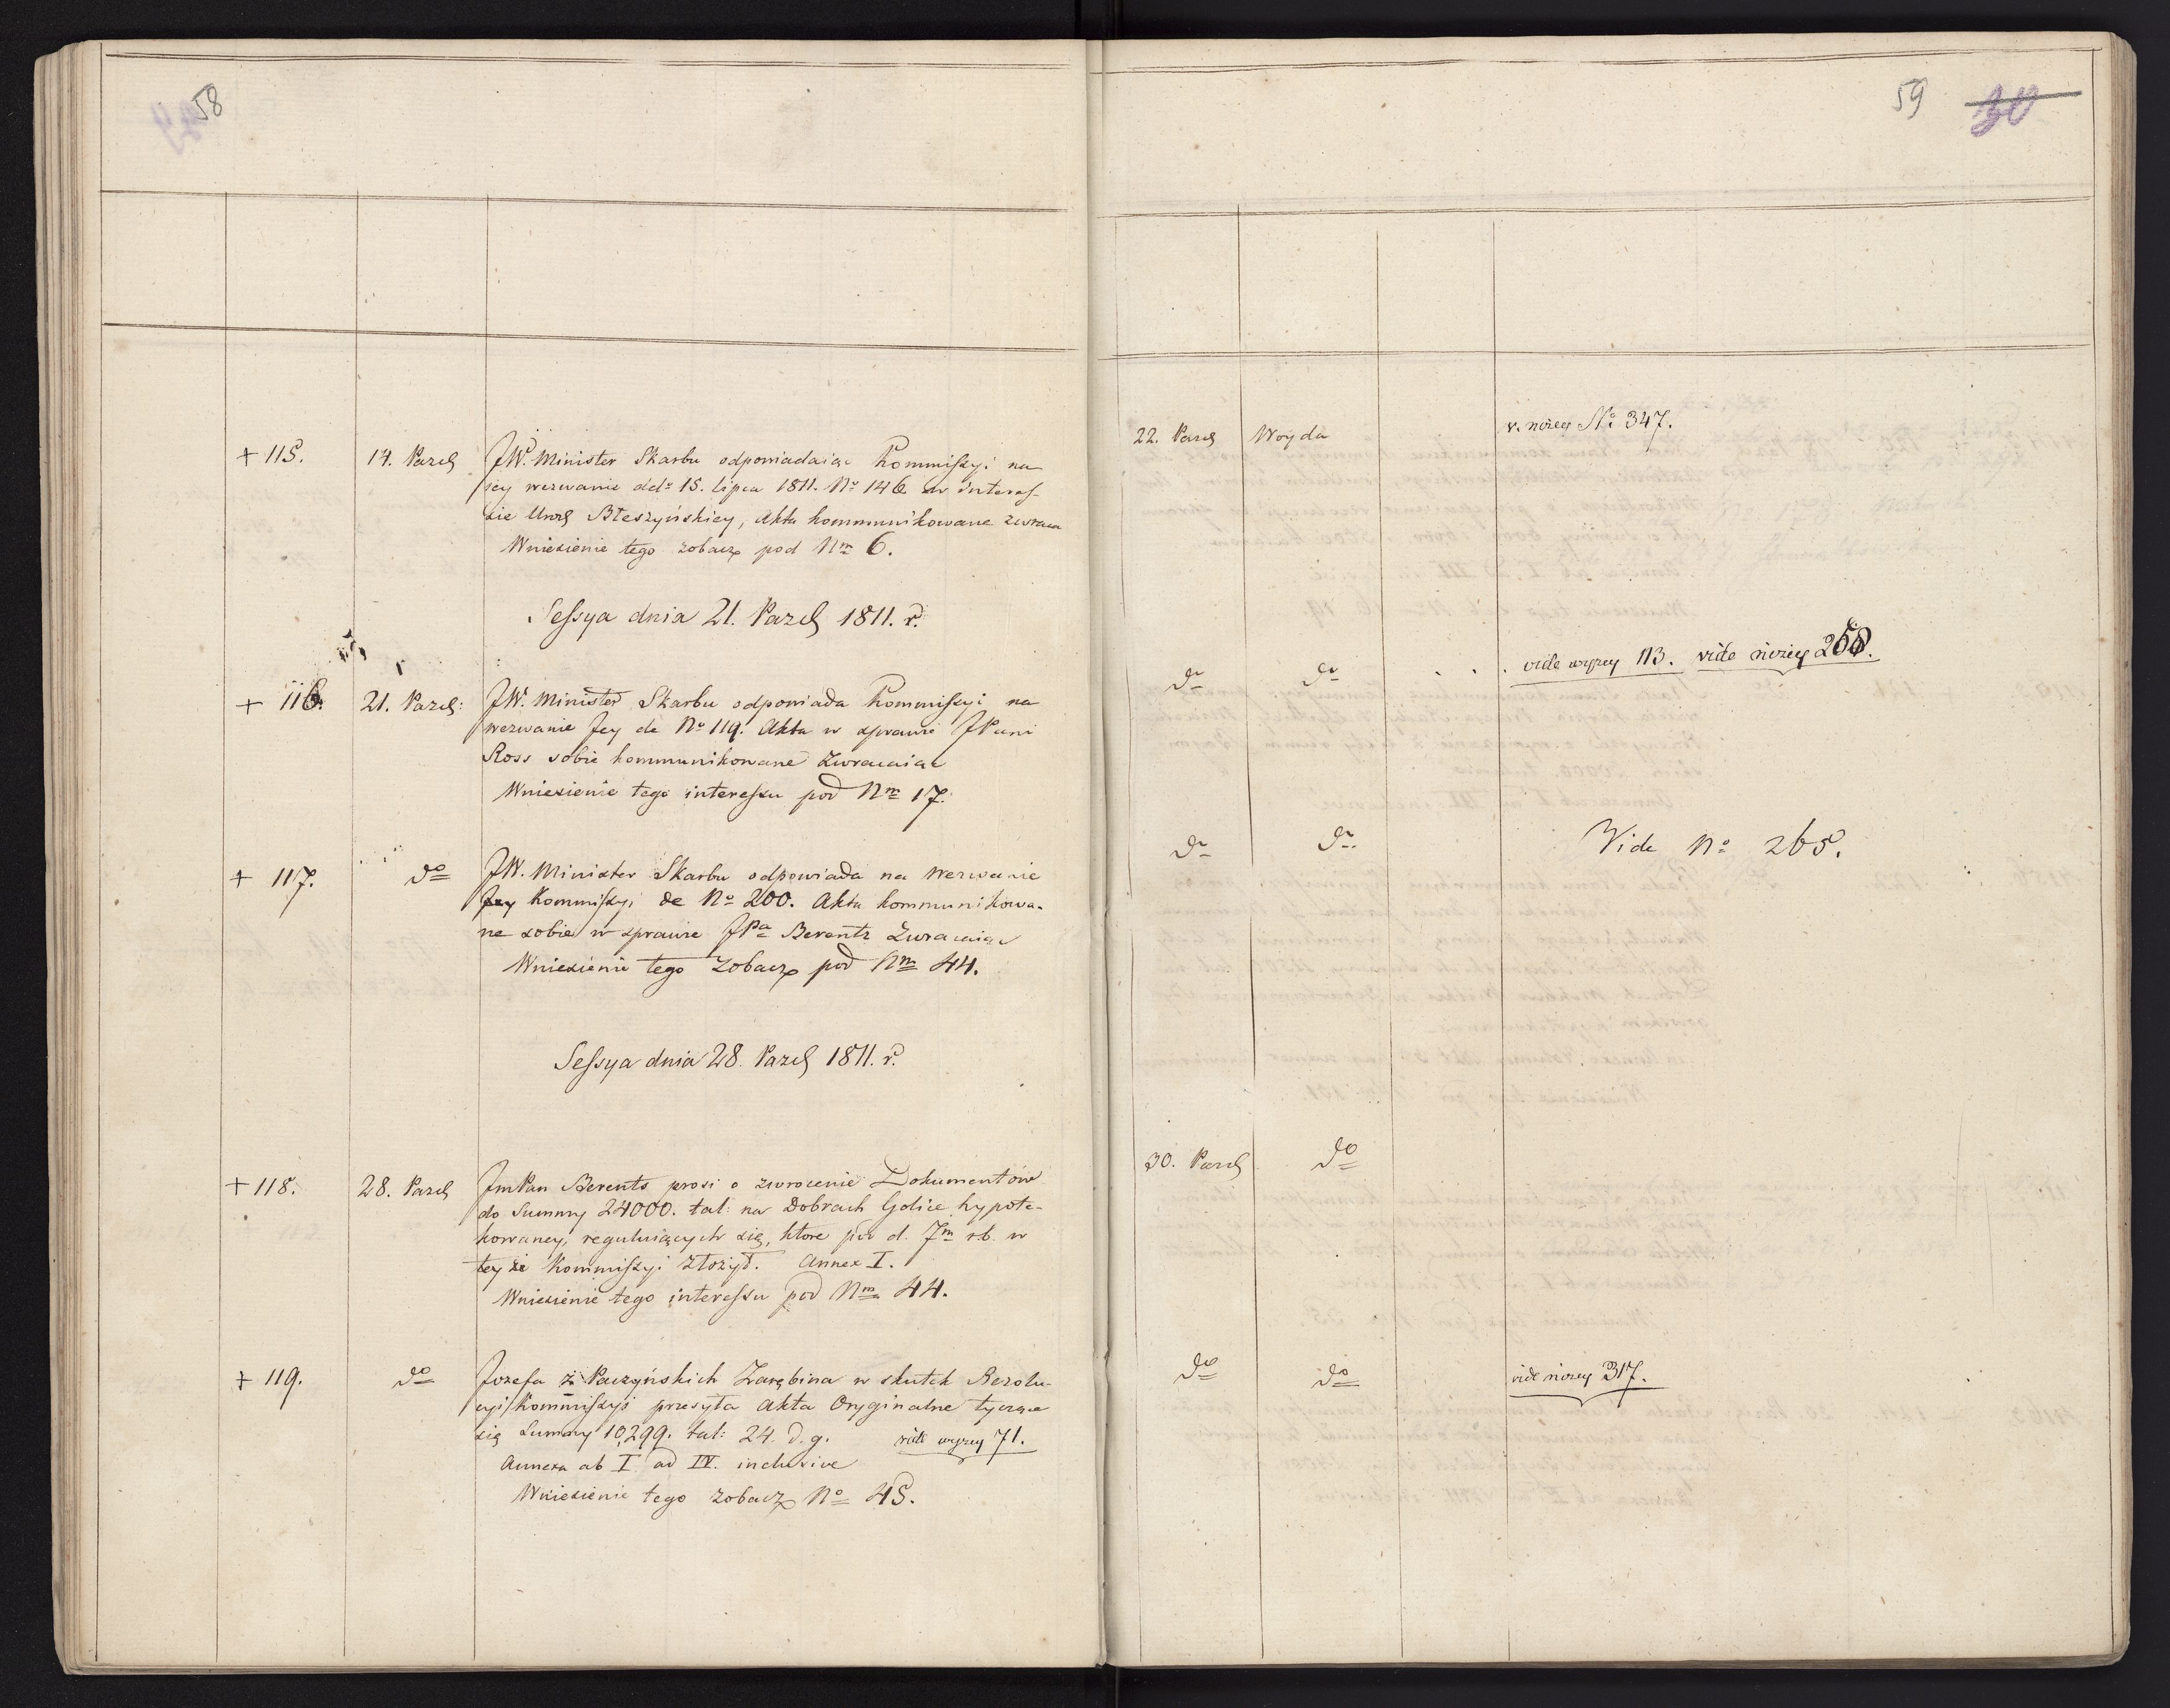 58
+ 115. 14. Pazdz JW. Minister Skarbu odpowiadaiąc Kommissyi na
jey wezwanie ddo 15. lipca 1811. No 146 w interes-
sie Urodz Błeszyńskiey, akta kommunikowane zwraca
Wniesienie tego zobacz pod Nrm 6.
Sessya dnia 21. Pazdz 1811. r.
+ 116. 21. Pazdz: JW. Minister Skarbu odpowiada Kommissyi na
wezwanie Jey de No 119. Akta w sprawie JPani
Ross sobie kommunikowane zwracaiąc
Wniesienie tego interessu pod Nrm 17.
+ 117. do JW. Minister Skarbu odpowiada na wezwanie
Jey Kommissyi de No 200. Akta kommunikowa-
ne sobie w sprawie JPa Berents zwracaiąc
Wniesienie tego zobacz pod Nrm 44.
Sessya dnia 28. Pazdz 1811. r.
+ 118. 28. Pazdz JmPan Berents prosi o zwrocenie Dokumentów
do Summy 24000. tal: na Dobrach Golice hypote-
kowaney, reguluiących się, ktore pod d. 7m rb. w
tey że Kommissyi złożył. Annex I.
Wniesienie tego interessu pod Nrm 44.
+ 119. do Jozefa z Paczyńskich Zarębina w skutek Rezolu-
cyi Kommissyi przesyła Akta Oryginalne tyczące
się Summy 10,299. tal: 24. d. g. vide wyzey 71.
Annexa ab I ad IV. inclusive
Wniesienie tego zobacz No 45.
59 30
22. Pazdz Woyda v. niżey No 347.
do do vide wyzey 113. vide niżey 258.
do do Vide No 265.
30. Pazdz do
do do vide niżey 317.